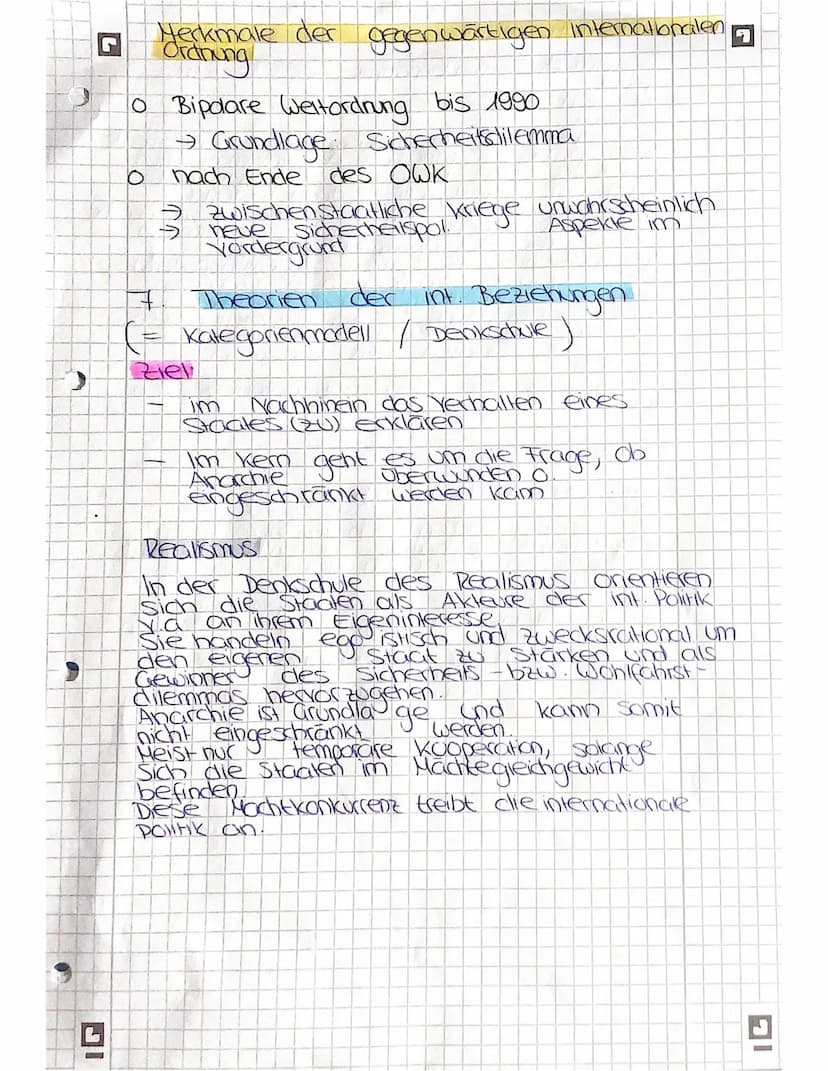 Merkmale der gegenwärtigen internationalen
Ordnung
o Bipolare Weltordnung bis 1990
→ Grundlage: Sicherheitsdilemma
o nach Ende des OWK
→ zwischenstaatliche Kriege unwahrscheinlich
→ neue sicherheitspol. Aspekte im
Vordergrund
7. Theorien der int. Beziehungen
(= Kategorienmodell / Denkschule)
Ziel:
- im Nachhinein das Verhalten eines
Staates (zu) erklären
- Im Kern geht es um die Frage, ob
Anarchie überwunden o.
eingeschränkt werden kann
Realismus
In der Denkschule des Realismus orientieren
sich die Staaten als Akteure der int. Politik
v.a an ihrem Eigeninteresse.
Sie handeln egoistisch und zwecksrational um
den eigenen Staat zu stärken und als
Gewinner des Sicherheits- bzw. Wohlfahrst-
dilemmas hervorzugehen.
Anarchie ist Grundlage und kann somit
nicht eingeschränkt werden.
Meist nur temporäre Kooperation, solange
sich die Staaten im Mächtegleichgewicht
befinden.
Diese Machtkonkurrenz treibt die internationale
Politik an.